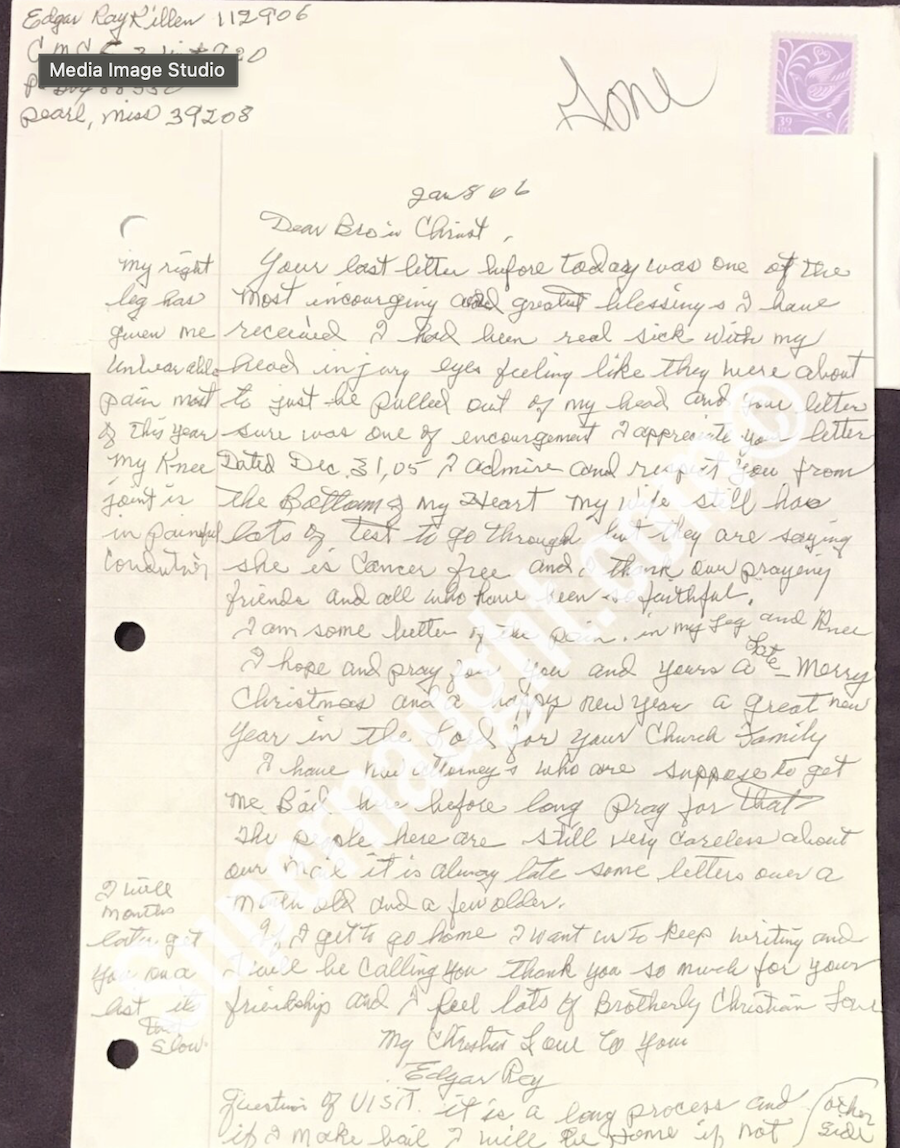 Edgar Ray Killen 112906
Media Image Studio
Pearl, Miss 39208
Gone
39
Jan 8 06
Dear Bro in Christ,
Your last letter before today was one of the
most incourging and greatest blessings I have
received I had been real sick with my
head injury eyes feeling like they were about
to just be pulled out of my head and your letter
sure was one of encouragement I appreciate your letter
Dated Dec. 31, 05 I admire and respect you from
the Bottom of my Heart my wife still has
lots of test to go through but they are saying
she is Cancer free and I thank our praying
friends and all who have been so faithful.
I am some better of the pain. in my Leg and Knee
I hope and pray for you and yours a Late Merry
Christmas and a happy new year a great new
Year in the Lord for your Church Family
I have new attorney's who are suppose to get
me Bail here before long pray for that
The people here are still very careless about
our mail it is alway late some letters over a
month old and a few older.
If I get to go home I want us to keep writing and
I will be calling you thank you so much for your
friendship and I feel lots of Brotherly Christian Love
My Christian Love to you
Edgar Ray
Question of VISIT. it is a long process and
if I make bail I will be Home if not
other
side
my right
leg has
given me
unbearable
pain most
of this year
my Knee
joint is
in painful
I will
months
later get
you on a
list its
slow.
supernaught.com ©